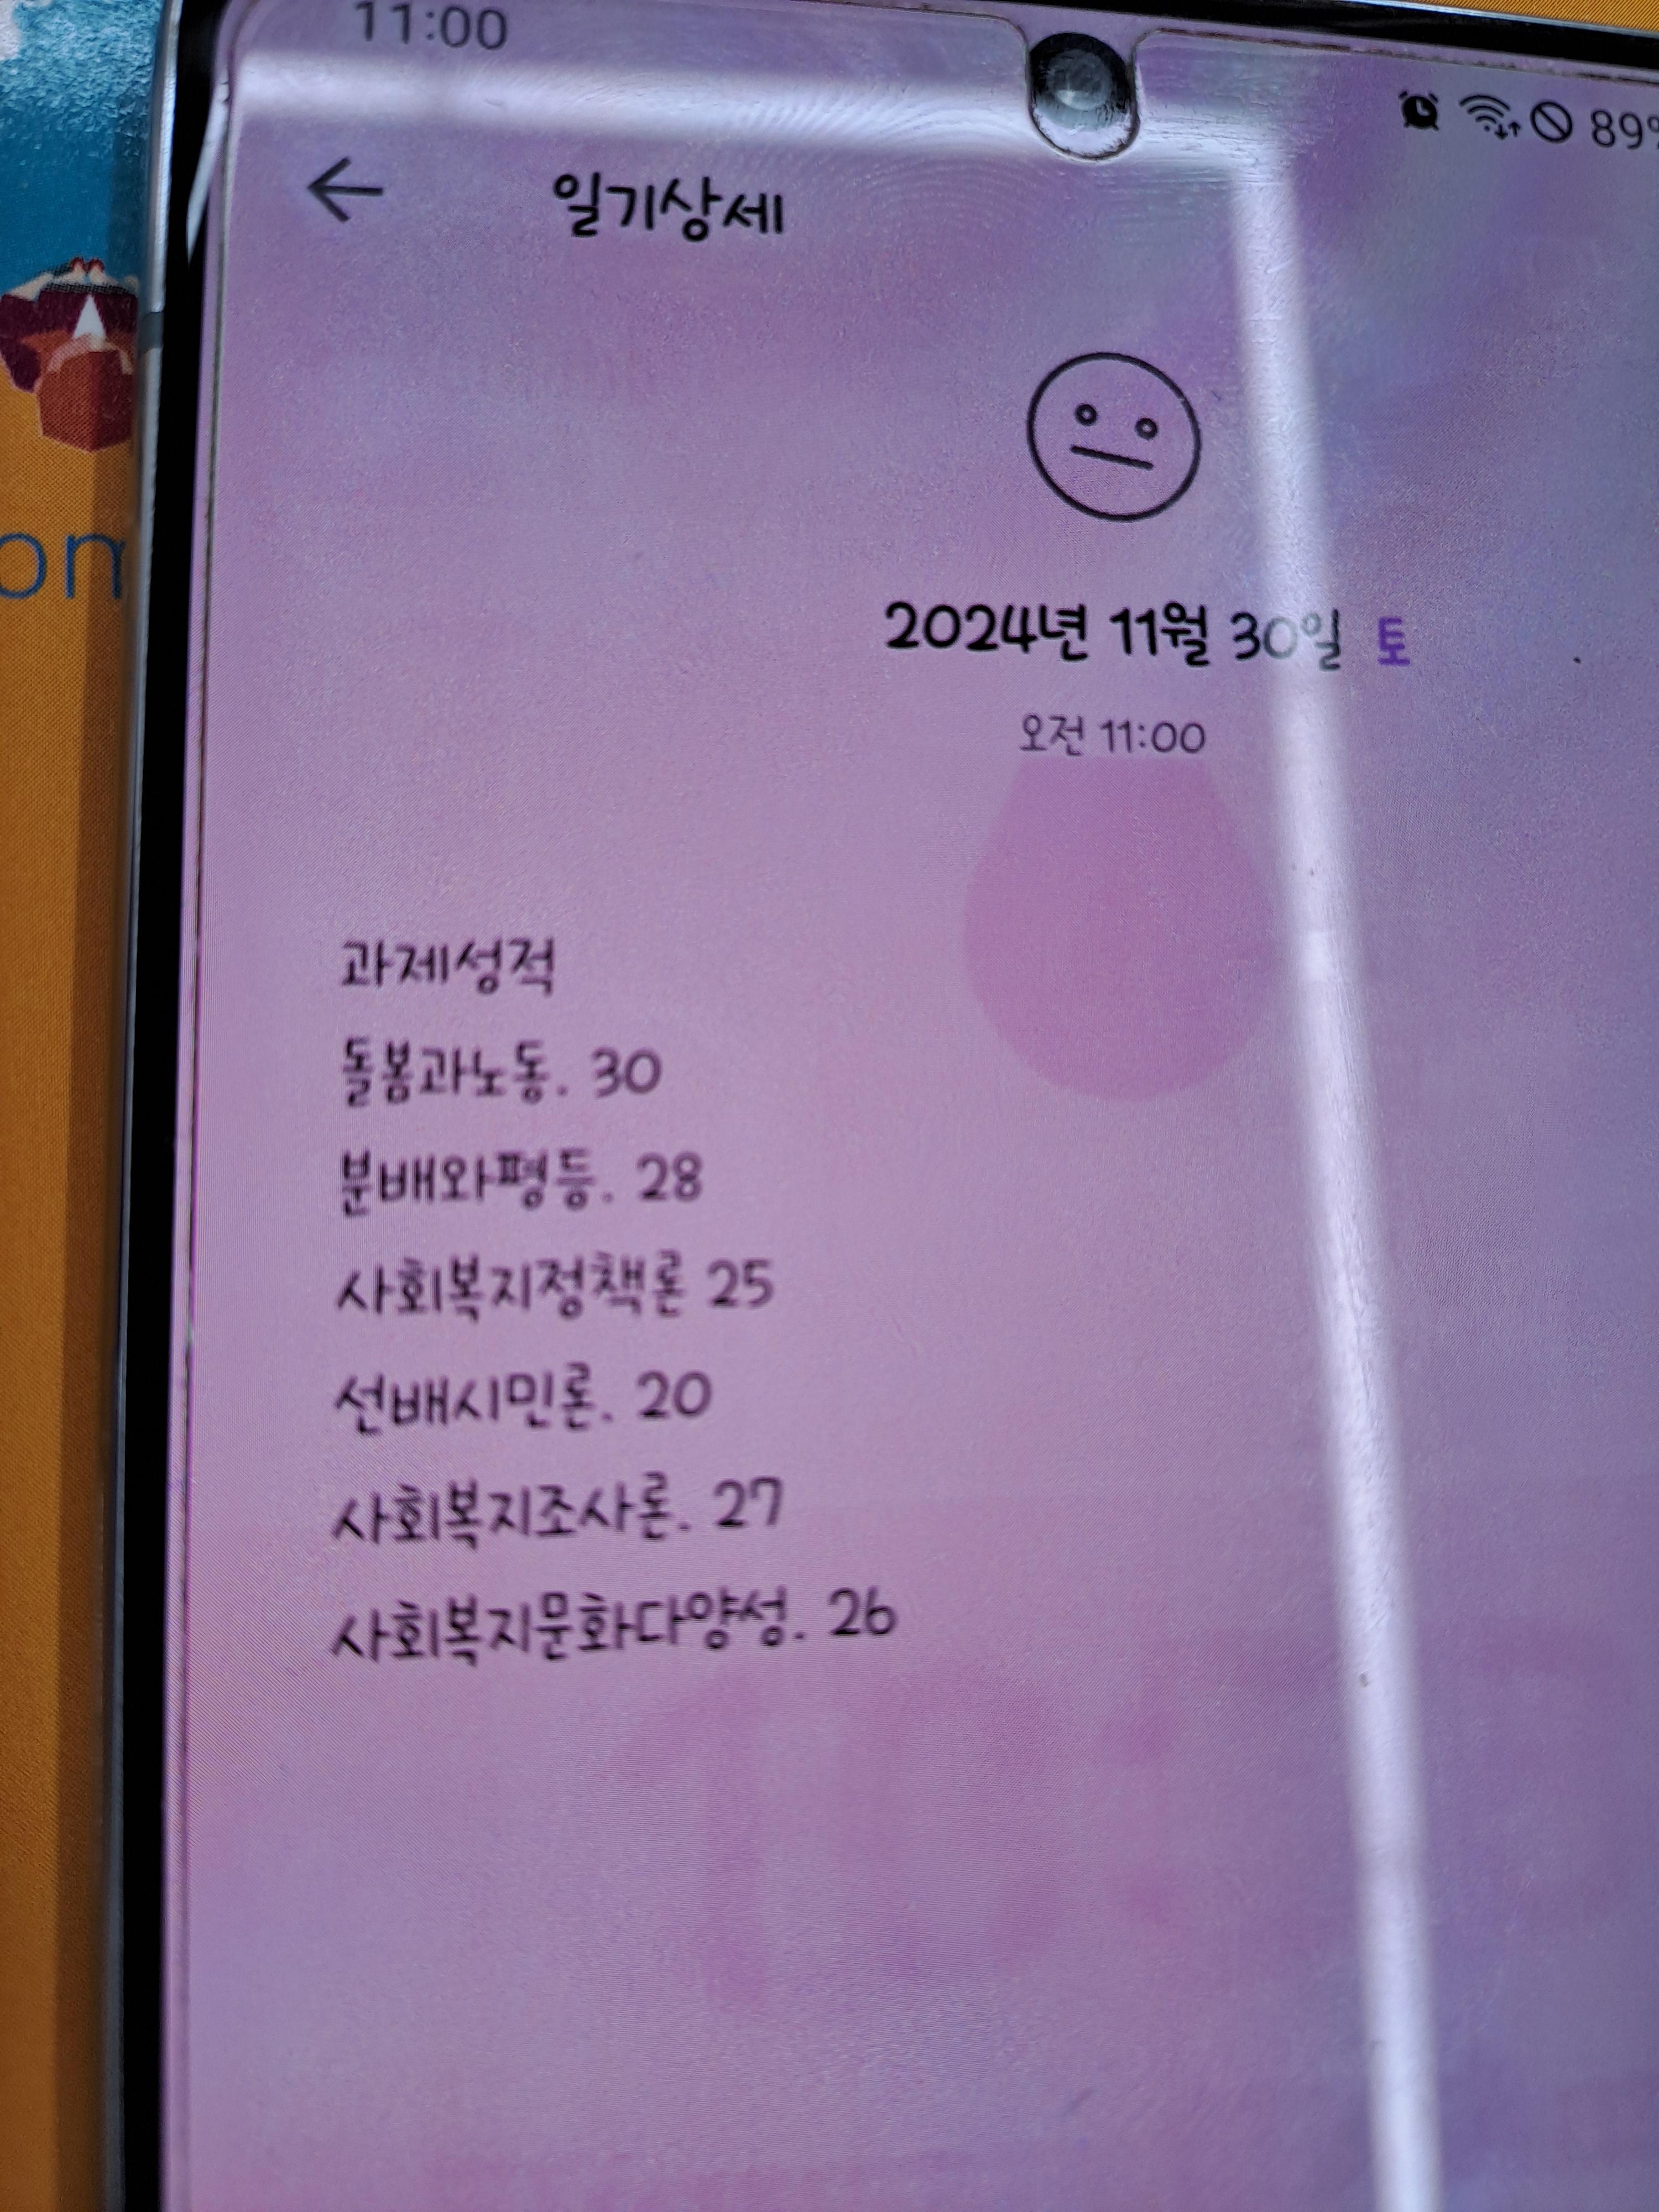 11:00
89%
일기상세
om
2024년 11월 30일 토
오전 11:00
과제성적
돌봄과노동. 30
분배와평등. 28
사회복지정책론 25
선배시민론. 20
사회복지조사론. 27
사회복지문화다양성. 26